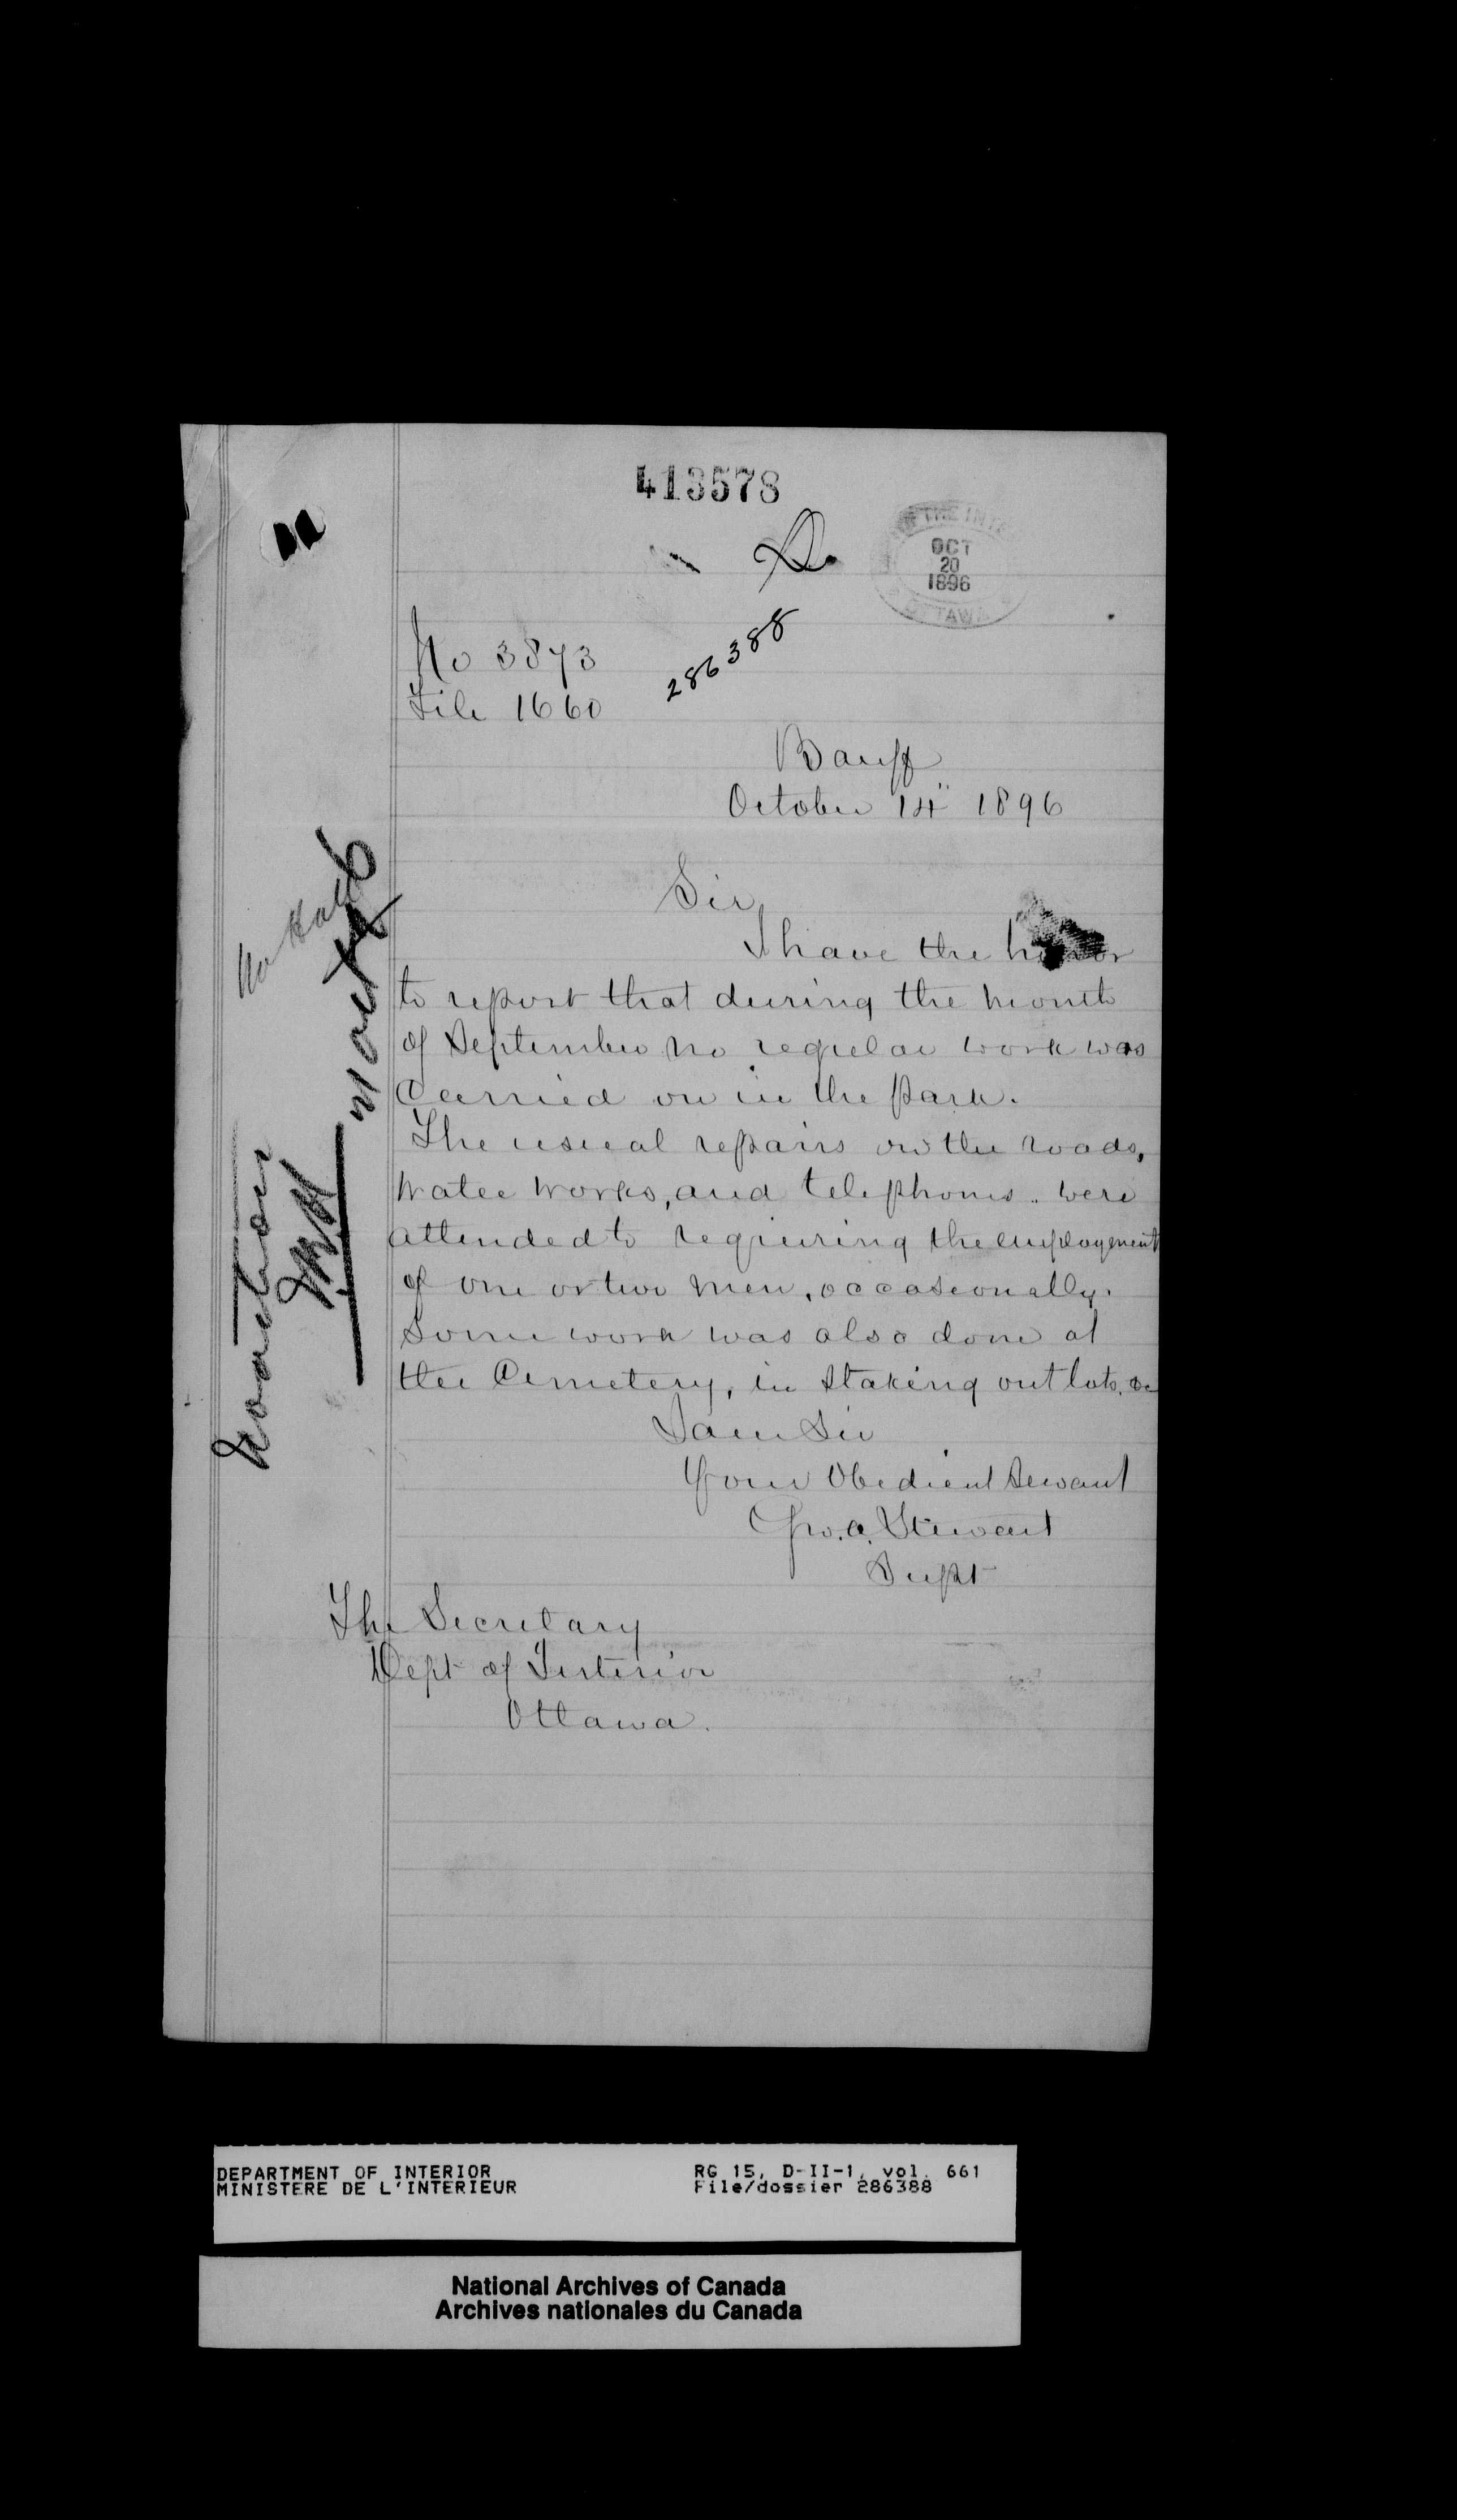 413578
OCT
20
1896
OTTAWA
No 3873
File 1660
286388
Banff
October 14" 1896
Sir,
I have the honor
to report that during the month
of September no regular work was
carried on in the Park.
The usual repairs on the roads,
water works, and telephones. were
attended to requiring the employment
of one or two men, occasionally.
Some work was also done at
the Cemetery, in staking out lots, &c
I am Sir
Your Obedient Servant
Geo. A. Stewart
Supt
The Secretary
Dept of Interior
Ottawa.
No action
DEPARTMENT OF INTERIOR
MINISTERE DE L'INTERIEUR
RG 15, D-II-1, vol. 661
File/dossier 286388
National Archives of Canada
Archives nationales du Canada